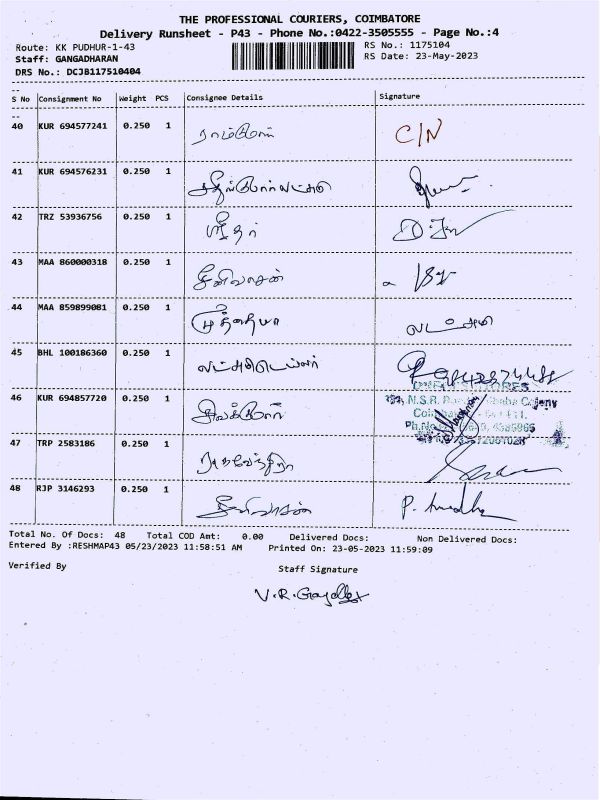 THE PROFESSIONAL COURIERS, COIMBATORE
Delivery Runsheet - P43 - Phone No.:0422-3505555 - Page No.:4
Route: KK PUDHUR-1-43
RS No.: 1175104
Staff: GANGADHARAN
RS Date: 23-May-2023
DRS No.: DCJB117510404
S No Consignment No Weight PCS Consignee Details Signature
40 KUR 694577241 0.250 1 ராம்குமார் C/N
41 KUR 694576231 0.250 1
42 TRZ 53936756 0.250 1 ஸ்ரீதர்
43 MAA 860000318 0.250 1 சீனிவாசன்
44 MAA 859899081 0.250 1 முத்தையா லட்சுமி
45 BHL 100186360 0.250 1
46 KUR 694857720 0.250 1 சிவக்குமார்
N.S.R. Colony
47 TRP 2583186 0.250 1 ராகவேந்திரா
48 RJP 3146293 0.250 1 சீனிவாசன் P. Anudha
Total No. Of Docs: 48 Total COD Amt: 0.00 Delivered Docs: Non Delivered Docs:
Entered By :RESHMAP43 05/23/2023 11:58:51 AM Printed On: 23-05-2023 11:59:09
Verified By Staff Signature